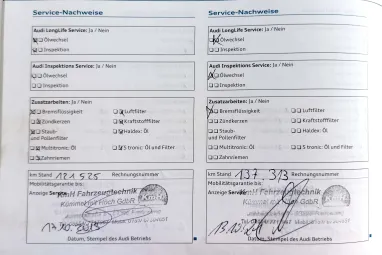 Service-Nachweise
Audi LongLife Service: Ja / Nein
Ölwechsel
Inspektion
Audi Inspektions Service: Ja / Nein
Ölwechsel
Inspektion
Zusatzarbeiten: Ja / Nein
Bremsflüssigkeit
Luftfilter
Zündkerzen
Kraftstofffilter
Staub- und Pollenfilter
Haldex: Öl
Multitronic: Öl
S tronic: Öl und Filter
Zahnriemen
km Stand 121.525 Rechnungsnummer
Mobilitätsgarantie bis:
Anzeige Service
Fahrzeugtechnik
13.10.2015
Datum, Stempel des Audi Betriebs
Service-Nachweise
Audi LongLife Service: Ja / Nein
Ölwechsel
Inspektion
Audi Inspektions Service: Ja / Nein
Ölwechsel
Inspektion
Zusatzarbeiten: Ja / Nein
Bremsflüssigkeit
Luftfilter
Zündkerzen
Kraftstofffilter
Staub- und Pollenfilter
Haldex: Öl
Multitronic: Öl
S tronic: Öl und Filter
Zahnriemen
km Stand 137.313 Rechnungsnummer
Mobilitätsgarantie bis:
Anzeige Service
Fahrzeugtechnik
Datum, Stempel des Audi Betriebs